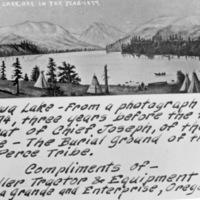 LAKE, ORE. IN THE YEAR 1874
wa Lake - From a photograph
4, three years before the
out of Chief Joseph, of the
e - The Burial ground of th
Perce Tribe.
Compliments of -
ller Tractor & Equipment
a grande and Enterprise, Oregon